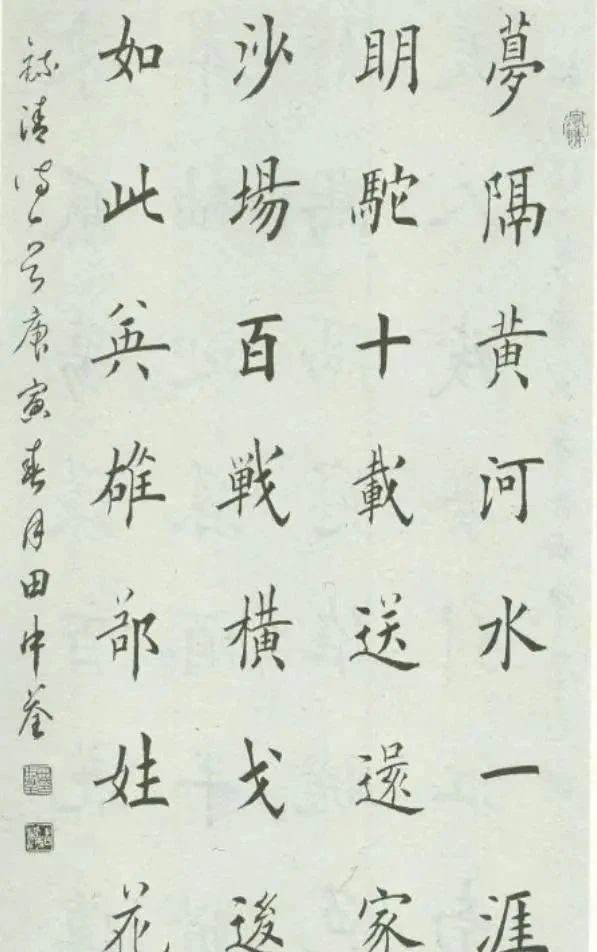 夢隔黃河水一涯
明駝十載送還家
沙場百戰橫戈後
如此英雄部姓花
錄清詩一首庚寅春月田中荃